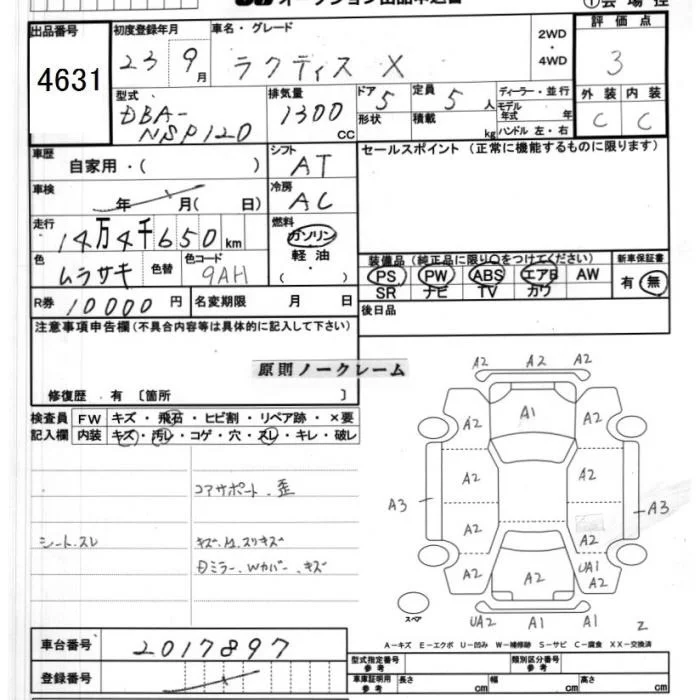 オークション出品申込書
①会場控
出品番号 4631
初度登録年月 23 9月
車名・グレード ラクティス X
2WD・4WD
評価点 3
外装 C 内装 C
型式 DBA-NSP120
排気量 1300 CC
ドア 5
形状
定員 5人
積載 kg
ディーラー・並行
モデル年式 年
ハンドル 左・右
車歴 自家用・( )
シフト AT
セールスポイント (正常に機能するものに限ります)
車検 年 月( 日)
冷房 AC
走行 14万4千650km
燃料 ガソリン 軽油 ( ・ )
色 ムラサキ 色替
色コード 9AH
装備品 (純正品に限り○をつけてください)
新車保証書
PS PW ABS エアB AW
有・無
SR ナビ TV カワ
R券 10000円
名変期限 月 日
後日品
注意事項申告欄 (不具合内容等は具体的に記入して下さい)
原則ノークレーム
修復歴・有〔箇所 〕
検査員 FW キズ・飛石・ヒビ割・リペア跡・×要
記入欄 内装 キズ・汚レ・コゲ・穴・スレ・キレ・破レ
コアサポート、歪
シート、スレ
キズ、凹、スリキズ
ミラー、Wカバー、キズ
A2 A2 A2
A1
A2 A2
A2 A2
A3 A3
A2 A2
A2 A2 UA1 A2
スペア
UA2 A1 A1 Z
A-キズ E-エクボ U-凹み W-補修跡 S-サビ C-腐食 XX-交換済
車台番号 2017897
登録番号
型式指定番号 参考
類別区分番号 参考
車庫証明用 参考 長さ cm 幅 cm 高さ cm